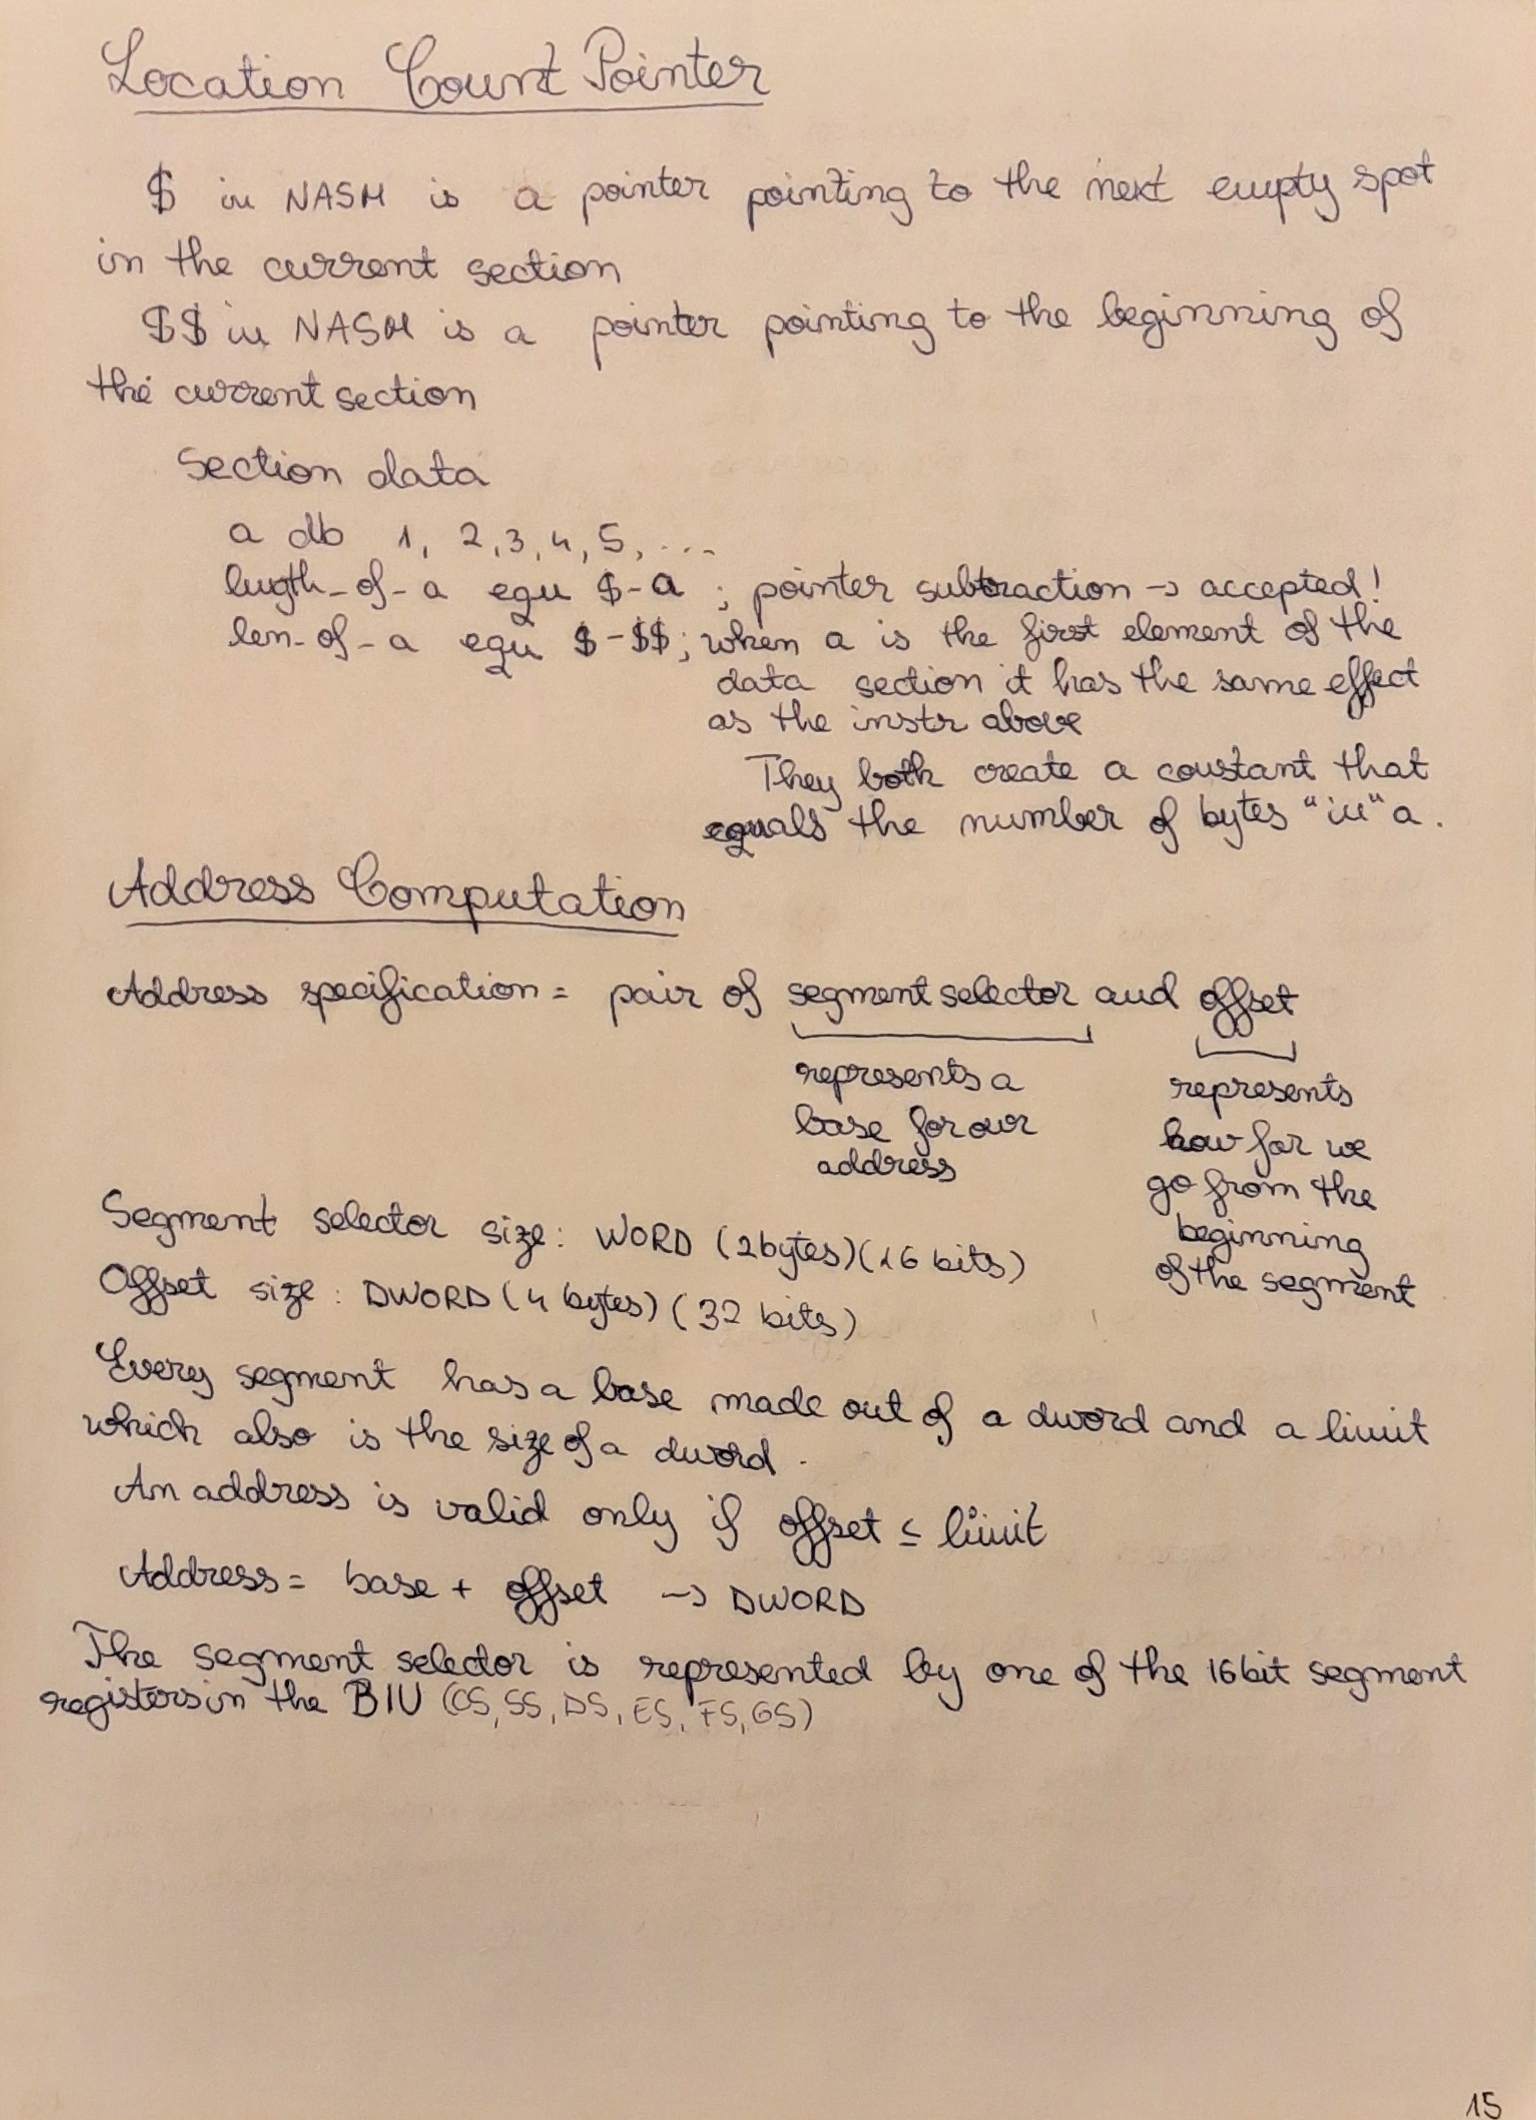 Location Count Pointer
$ in NASM is a pointer pointing to the next empty spot
in the current section
$$ in NASM is a pointer pointing to the beginning of
the current section
Section data
a db 1, 2,3,4,5,...
length_of_a equ $-a ; pointer subtraction → accepted!
len_of_a equ $-$$; when a is the first element of the
data section it has the same effect
as the instr above
They both create a constant that
equals the number of bytes "in" a.
Address Computation
Address specification = pair of segment selector and offset
represents a
base for our
address
represents
how far we
go from the
beginning
of the segment
Segment selector size: WORD (2bytes)(16 bits)
Offset size: DWORD (4 bytes) (32 bits)
Every segment has a base made out of a dword and a limit
which also is the size of a dword.
An address is valid only if offset ≤ limit
Address = base + offset → DWORD
The segment selector is represented by one of the 16bit segment
registers in the BIU (CS, SS, DS, ES, FS, GS)
15